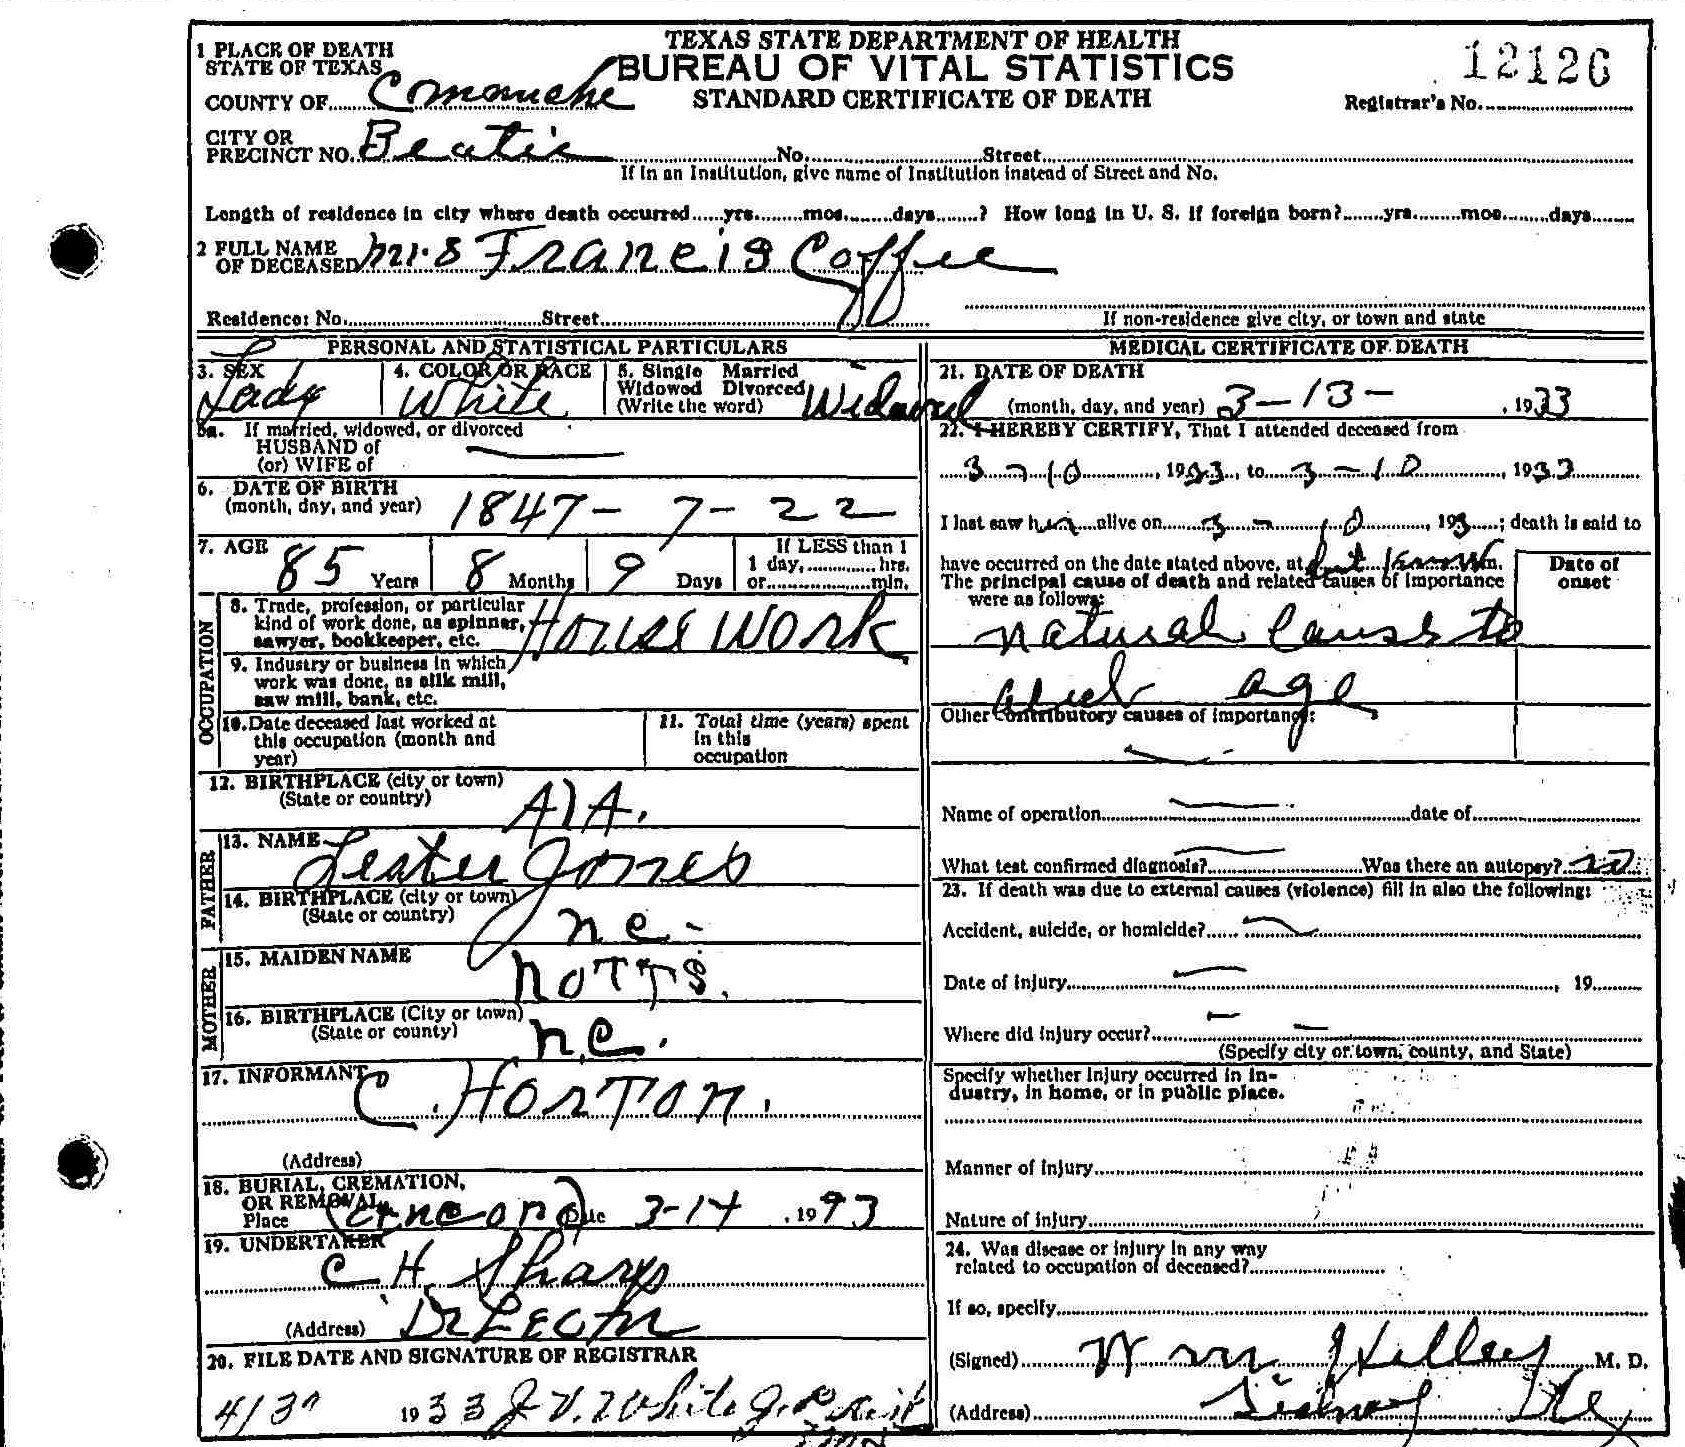 TEXAS STATE DEPARTMENT OF HEALTH
BUREAU OF VITAL STATISTICS
STANDARD CERTIFICATE OF DEATH
12126
Registrar's No.
1 PLACE OF DEATH
STATE OF TEXAS
COUNTY OF Comanche
CITY OR
PRECINCT NO. Beatie No. Street
If in an Institution, give name of Institution instead of Street and No.
Length of residence in city where death occurred yrs. mos. days ? How long in U. S. if foreign born? yrs. mos. days
2 FULL NAME
OF DECEASED Mrs Francis Coffee
Residence: No. Street
If non-residence give city, or town and state
PERSONAL AND STATISTICAL PARTICULARS
3. SEX Lady
4. COLOR OR RACE White
5. Single Married
Widowed Divorced
(Write the word) Widowed
5a. If married, widowed, or divorced
HUSBAND of
(or) WIFE of
6. DATE OF BIRTH
(month, day, and year) 1847 - 7 - 22
7. AGE 85 Years 8 Months 9 Days
If LESS than 1
1 day, hrs.
or min.
OCCUPATION
8. Trade, profession, or particular
kind of work done, as spinner,
sawyer, bookkeeper, etc. House Work
9. Industry or business in which
work was done, as silk mill,
saw mill, bank, etc.
10. Date deceased last worked at
this occupation (month and
year)
11. Total time (years) spent
in this
occupation
12. BIRTHPLACE (city or town)
(State or country) AlA.
FATHER
13. NAME Lester Jones
14. BIRTHPLACE (city or town)
(State or country) n c -
MOTHER
15. MAIDEN NAME NOTTS.
16. BIRTHPLACE (City or town)
(State or county) n.c.
17. INFORMANT C. HORTON.
(Address)
18. BURIAL, CREMATION,
OR REMOVAL
Place Concord Date 3-14, 1933
19. UNDERTAKER
C H Sharp
(Address) De Leon
20. FILE DATE AND SIGNATURE OF REGISTRAR
1933 J. V. White
MEDICAL CERTIFICATE OF DEATH
21. DATE OF DEATH
(month, day, and year) 3-13-, 1933
22. I HEREBY CERTIFY, That I attended deceased from
3-10, 1933, to 3-10, 1933
I last saw her alive on 3-10, 193; death is said to
have occurred on the date stated above, at m.
The principal cause of death and related causes of importance
were as follows:
Date of
onset
natural cause to
age
Other contributory causes of importance:
Name of operation date of
What test confirmed diagnosis? Was there an autopsy? no
23. If death was due to external causes (violence) fill in also the following:
Accident, suicide, or homicide?
Date of injury, 19
Where did injury occur?
(Specify city or town, county, and State)
Specify whether injury occurred in in-
dustry, in home, or in public place.
Manner of injury
Nature of injury
24. Was disease or injury in any way
related to occupation of deceased?
If so, specify
(Signed) M. D.
(Address) Sidney Tex